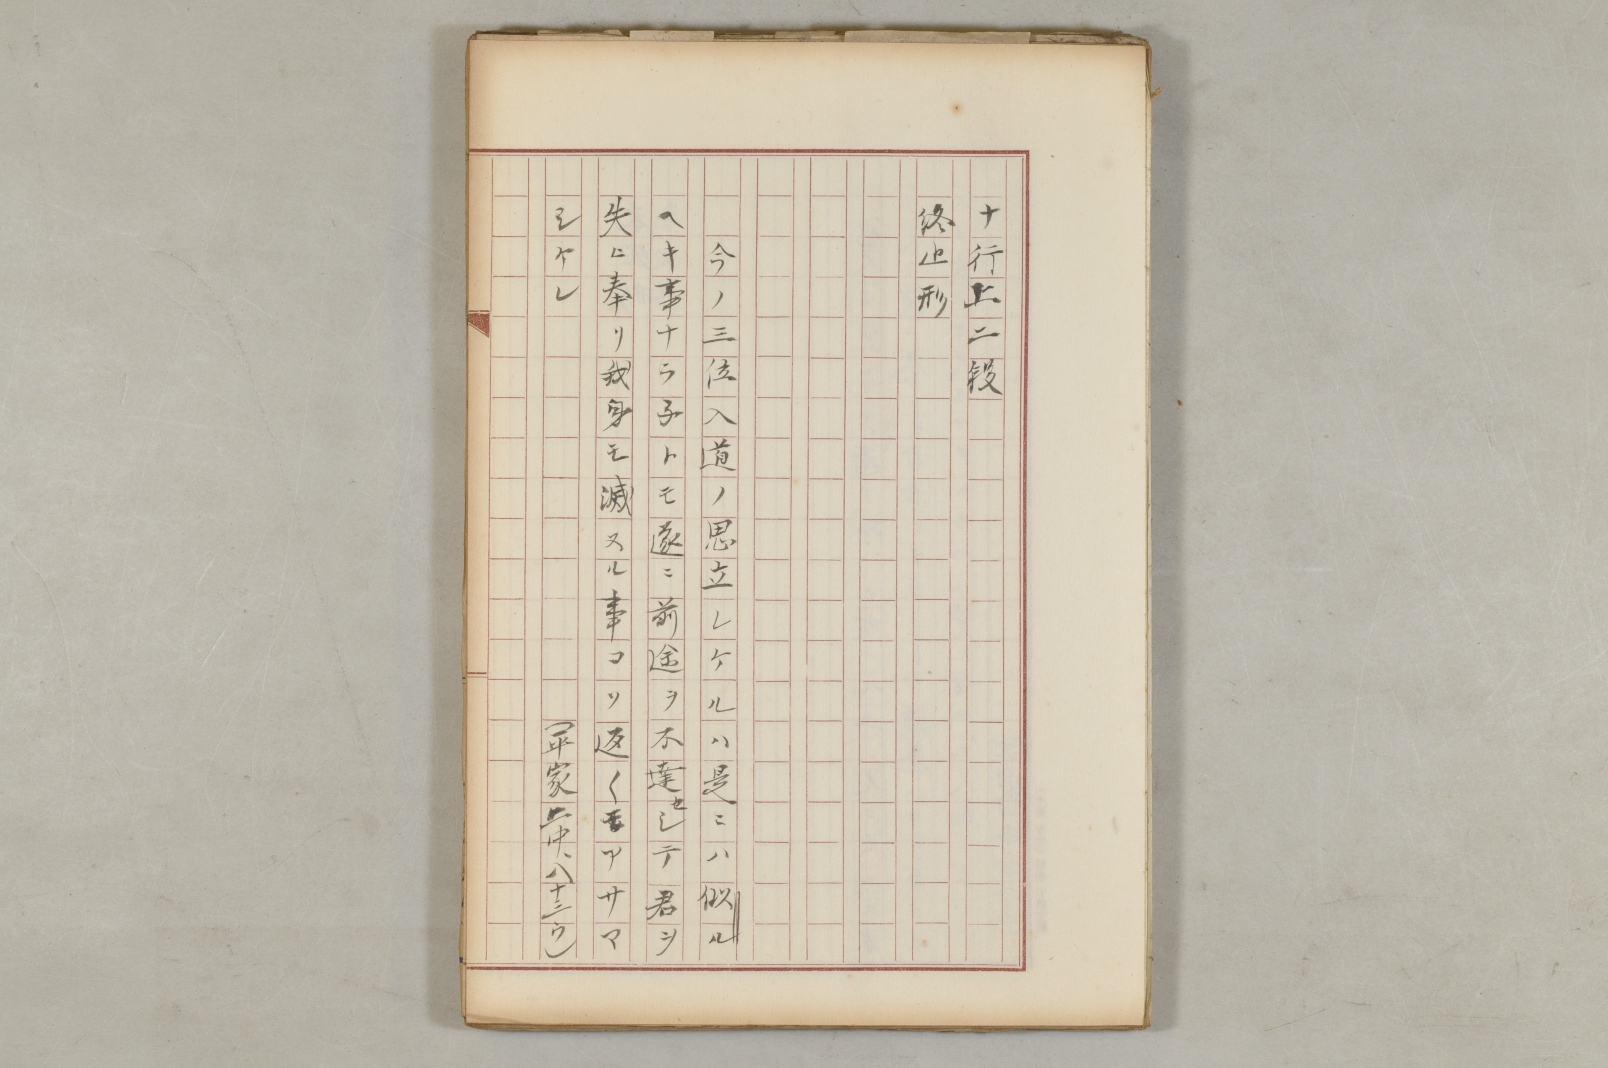 ナ行上二段
終止形
今ノ三位入道ノ思立レケルハ是ニハ似ル
ヘキ事ナラ子トモ遂ニ前途ヲ不達セシテ君ヲ
失ヒ奉リ我身モ滅スル事コソ返〱モアサマ
シケレ
（平家上中、八十三ウ）